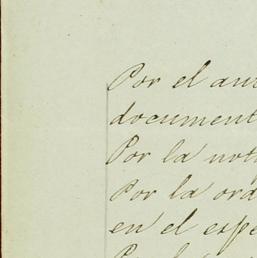 Por el au
document
Por la not
Por la ord
en el expe